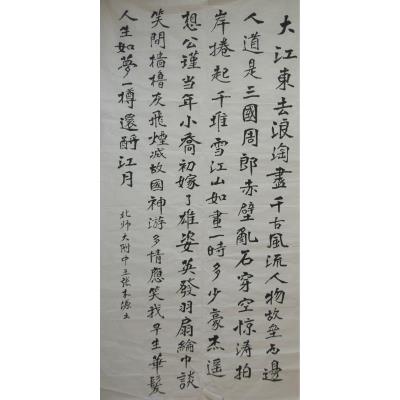 大江東去浪淘盡千古風流人物故壘西邊
人道是三國周郎赤壁亂石穿空惊涛拍
岸捲起千堆雪江山如畫一時多少豪杰遥
想公瑾当年小喬初嫁了雄姿英發羽扇綸巾談
笑間檣櫓灰飛煙滅故國神游多情應笑我早生華髮
人生如夢一樽還酹江月
北師大附中